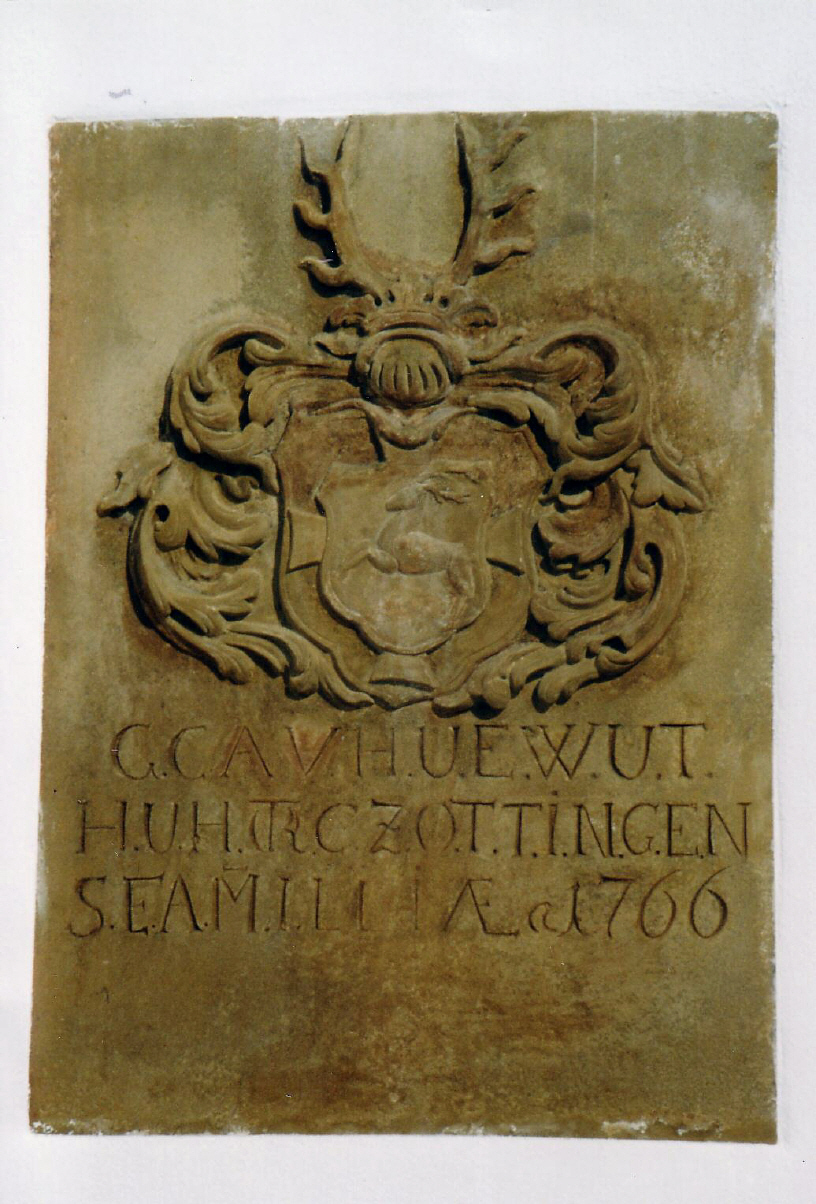 G.C.A.V.H.U.E.W.U.T.
H.U.H.T.R.C.Z.O.T.T.I.N.G.E.N
S.E.A.M.I.L I I Æ 1766